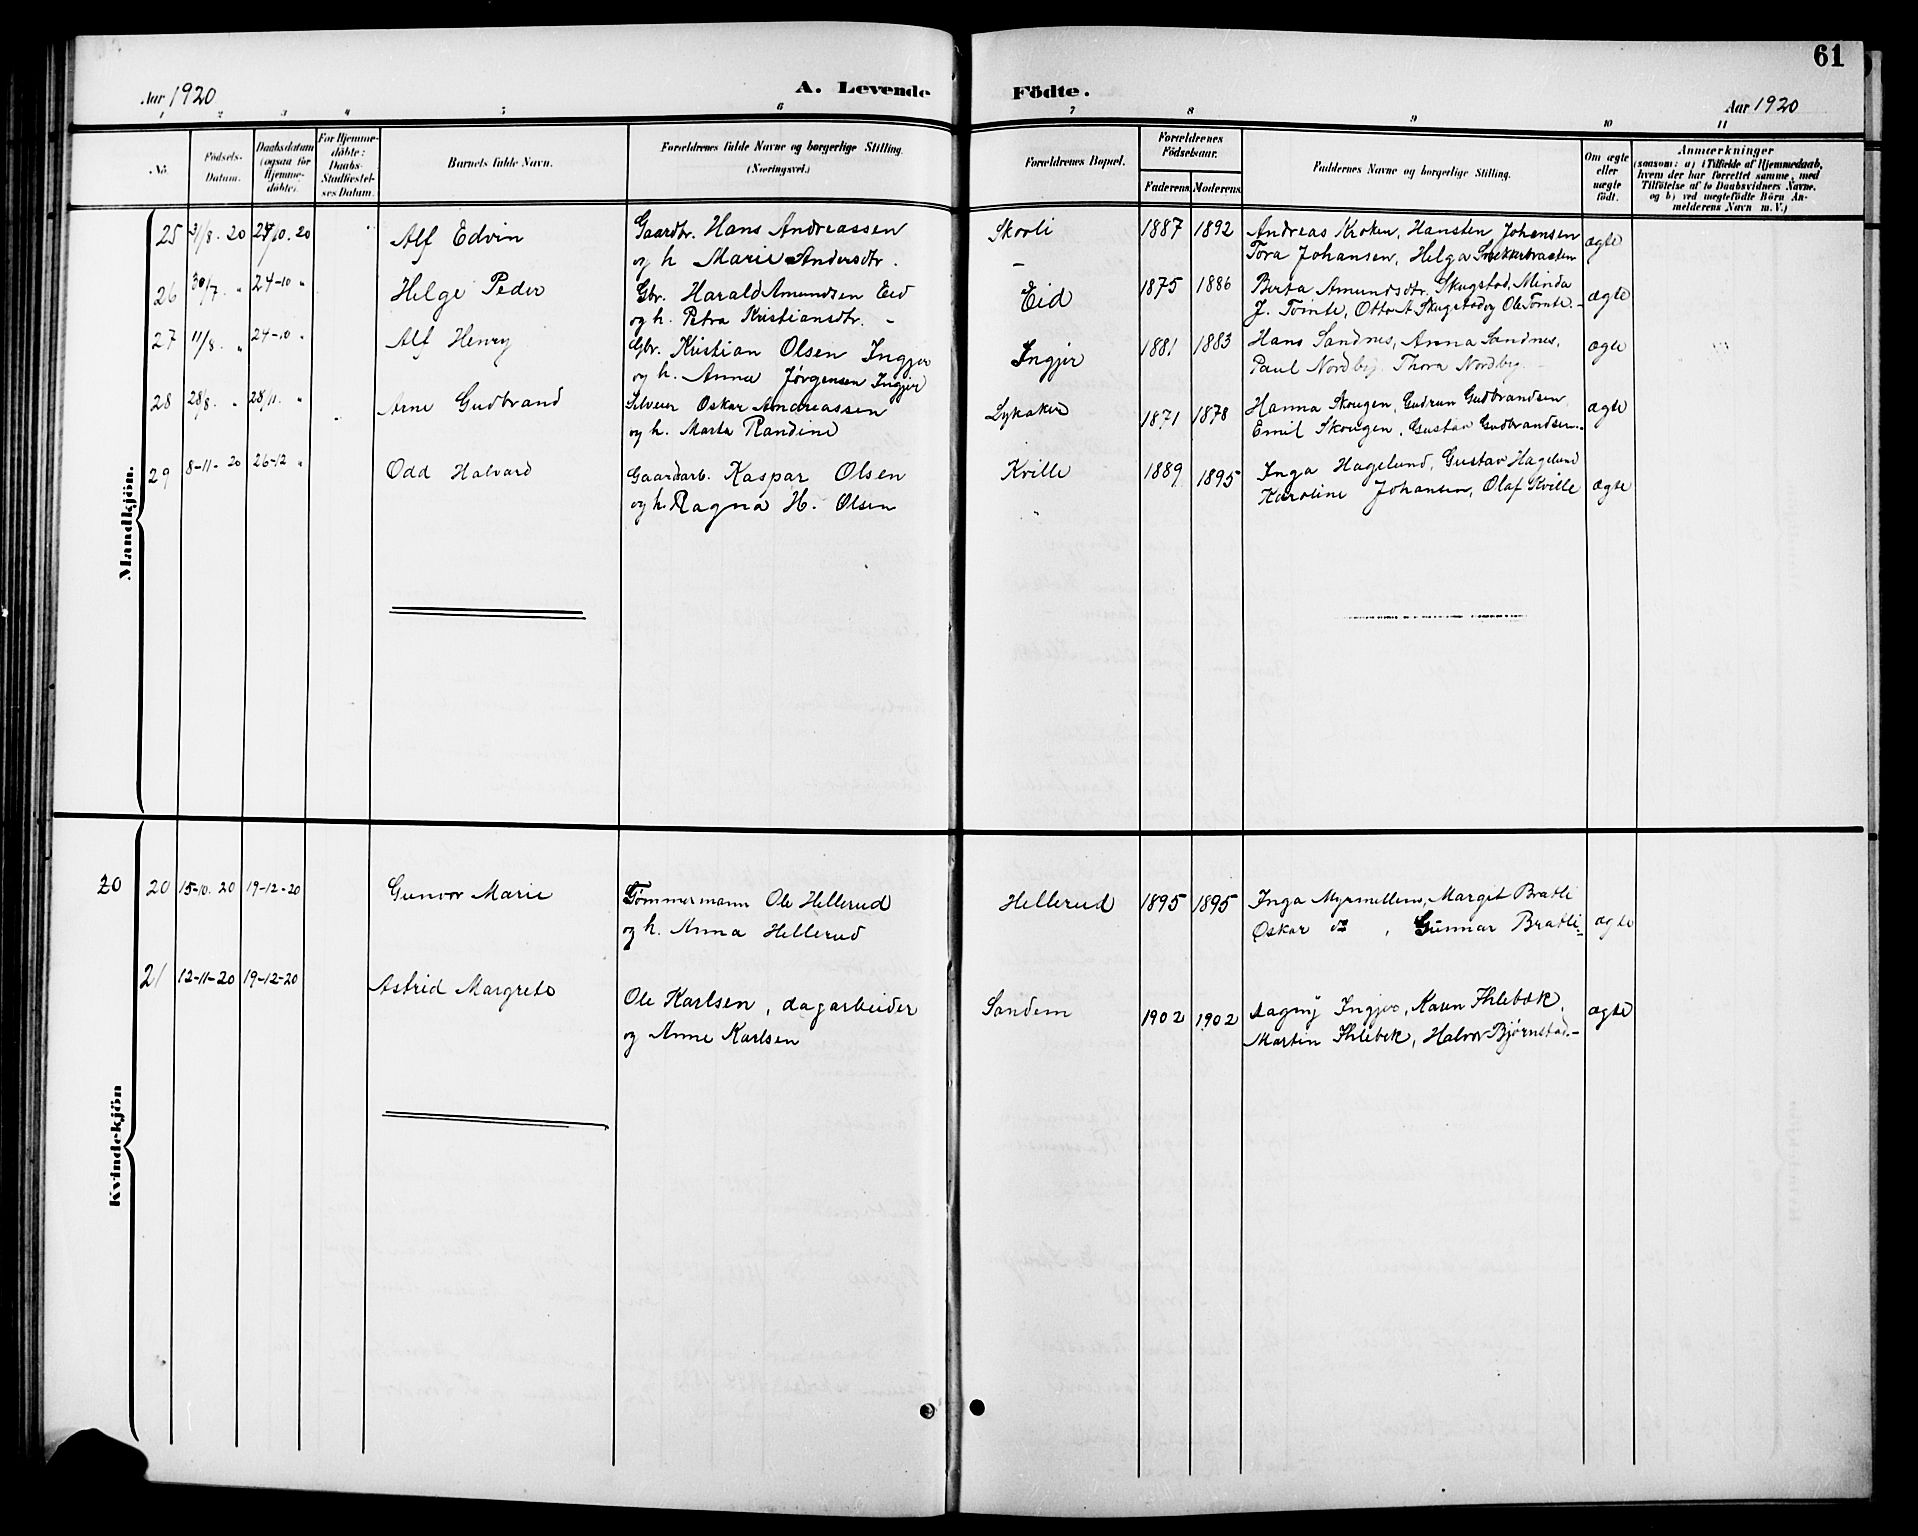 61
Aar 1920 A. Levende Födte. Aar 1920
1 2 3 4 5 6 7 8 9 10 11
No. Födsels-Datum. Daabsdatum (ogsaa for Hjemme-döbte). For Hjemme-döbte: Daabs-Stadfæstel-ses Datum. Barnets fulde Navn. Forældrenes fulde Navne og borgerlige Stilling. (Næringsvei.) Forældrenes Bopæl. Forældrenes Födselsaar. Faderens. Moderens. Faddernes Navne og borgerlige Stilling. Om ægte eller uægte födt. Anmærkninger (saasom: a) i Tilfælde af Hjemmedaab, hvem der har forrettet samme, med Tilföielse af to Daabsvidners Navne, og b) ved uægtefödte Börn An-melderens Navn m. V.)
Mandkjön.
25 31/8. 20 24/10. 20 Alf Edvin Gaardbr. Hans Andreassen Skorli 1887 1892 Andreas Kroken, Hansten Johansen ægte
og h Marie Andersdtr. Tora Johansen, Helga Snekkerbraaten
26 30/7. " 24-10 " Helge Peder Gbr. Harald Amundsen Eid Eid 1875 1886 Berta Amundsdtr. Skugstad, Minda ægte
og h. Petra Kristiansdtr. - J. Tømte, Otto A Skugstad og Ole Tømte. -
27 11/8. " 24-10 " Alf Henry Gbr. Kristian Olsen Ingjer Ingjer 1881 1883 Hans Sandnes, Anna Sandnes, ægte
og h. Anna Jørgensen Ingjer Paul Nordby, Thora Nordby. -
28 28/8. " 28/11. " Arne Gudbrand Oskar Andreassen Lykaker 1871 1878 Hanna Skougen, Gudrun Gudbrandsen, ægte
og h. Marta Randine Emil Skougen, Gustav Gudbrandsen.
29 8-11- 20 26-12 " Odd Halvard Gaardarb. Kaspar Olsen Kville 1889 1895 Inga Hagelund, Gustav Hagelund ægte
og h. Ragna H. Olsen " Karoline Johansen, Olaf Kville
Kvindekjön
20 20 15-10. 20 19-12-20 Gunvor Marie Tømmermann Ole Hellerud Hellerud 1895 1895 Inga Myrmellem, Margit Bratli ægte
og h. Anna Hellerud Oskar do, Gunnar Bratli
21 12-11-20 19-12-20 Astrid Margrete Ole Karlsen, dagarbeider Sandem 1902 1902 Dagny Ingjer, Karen Ihlebæk, ægte
og Anne Karlsen Martin Ihlebek, Halvor Bjørnstad. -